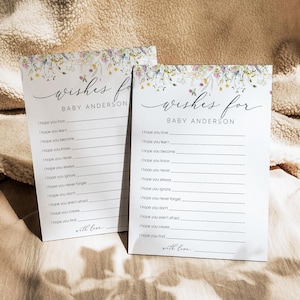 wishes for
BABY ANDERSON
I hope you love
I hope you learn
I hope you become
I hope you know
I hope you never
I hope you always
I hope you ignore
I hope you never forget
I hope you learn
I hope you aren't afraid
I hope you
I hope you find
with love
wishes for
BABY ANDERSON
I hope you love
I hope you learn
I hope you become
I hope you know
I hope you never
I hope you always
I hope you ignore
I hope you never forget
I hope you learn
I hope you aren't afraid
I hope you
I hope you find
with love